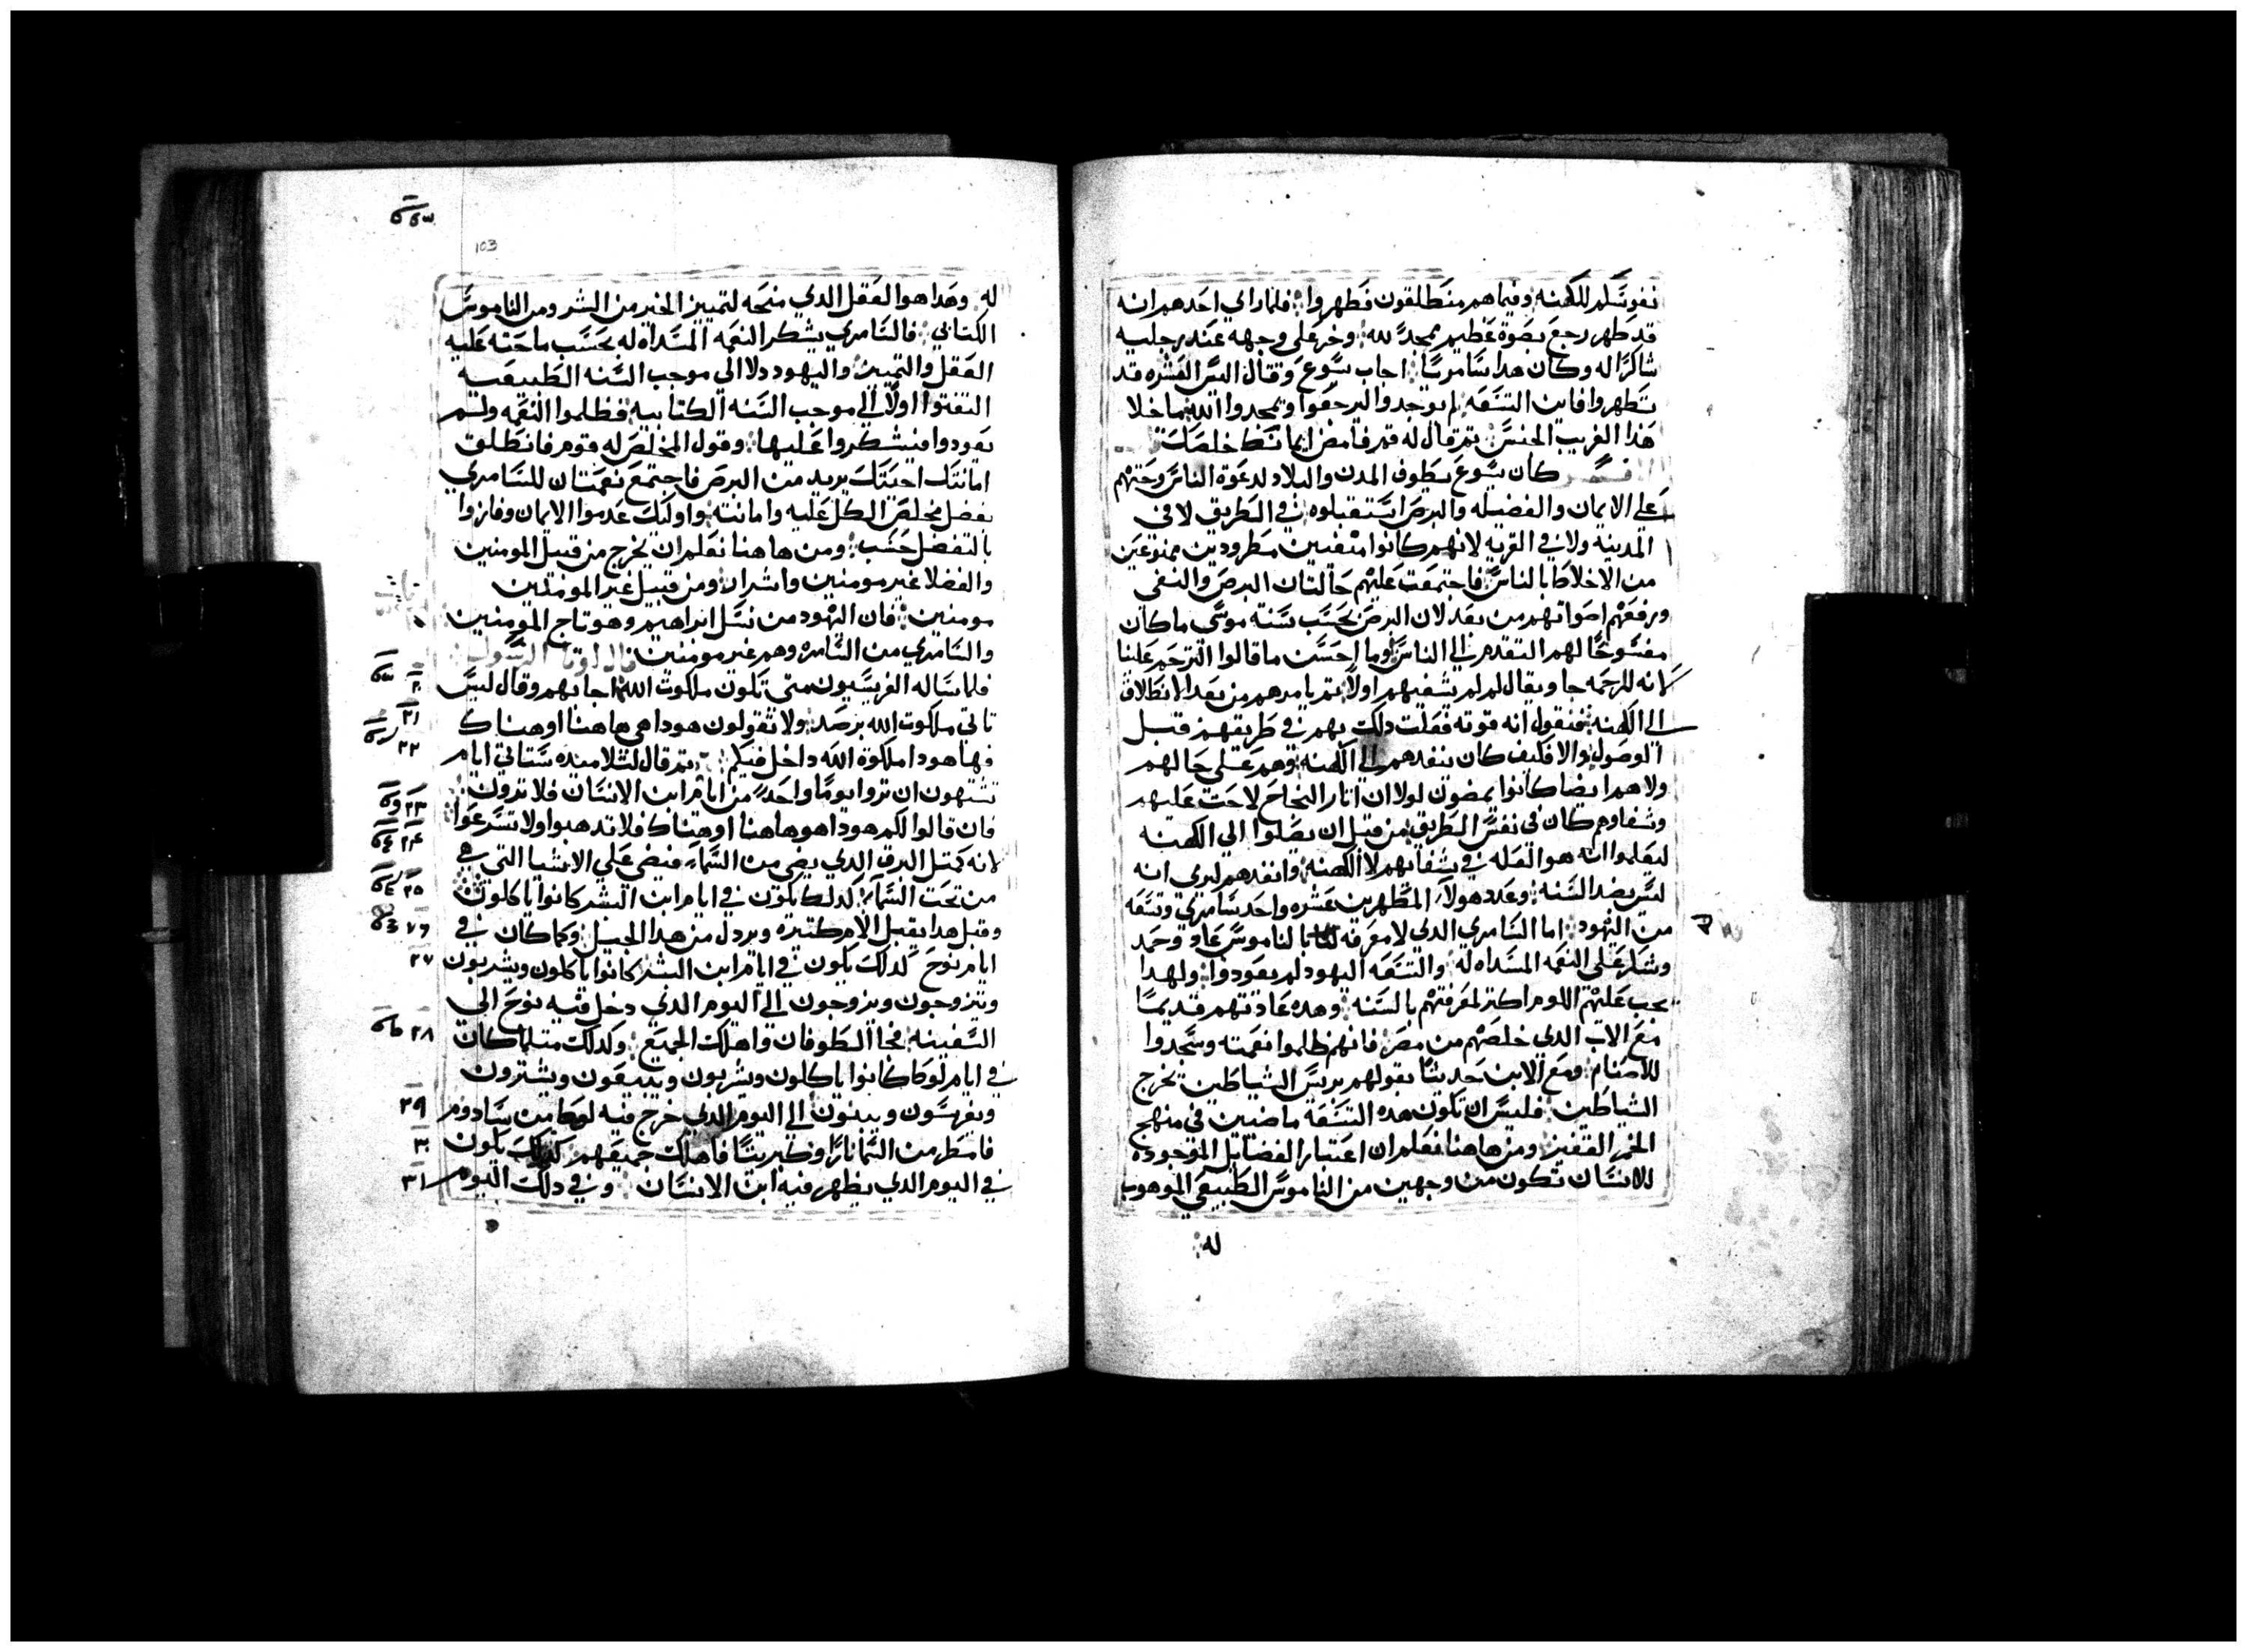 نفوسكم للكهنه وفيماهم منطلقون فطهروا فلما راي احدهم انه
قد طهر رجع بصوة عظيم يمجد لله وخر علي وجهه عند رجليه
شاكرًا له وكان هدا سامريًا اجاب يسوع وقال اليس العشره قد
تطهروا فاين التسعه لم يوجدوا ليرجعوا ويمجدوا الله ما خلا
هذا الغريب الجنس تم قال له قم فامض ايمانك خلصك
كان يسوع يطوف المدن والبلاد لدعوة الناس وحتهم
علي الايمان والفضيله والبرص استقبلوه في الطريق لا في
المدينة ولا في القريه لانهم كانوا منفيين مطرودين ممنوعين
من الاخلاط بالناس فاجتمعت عليهم حالتان البرص والنفي
ورفعهم اصواتهم من بعد لان البرص بحسب سنة موسى ماكان
مفسوحًا لهم التقدم الي الناس وما احسن ما قالوا اترحم علينا
لانه للرحمه جا ويقال لم لم يشفيهم اولًا تم يامرهم من بعد الانطلاق
الي الكهنه فنقول انه قوته فعلت دلك بهم في طريقهم قبل
الوصول والا فكيف كان ينفدهم الي الكهنه وهم علي حالهم
ولاهم ايضا كانوا يمضون لولا ان اتار النجاح لاحت عليهم
وشفاوهم كان في نفس الطريق من قبل ان يصلوا الي الكهنه
ليعلموا انه هو العله في شفايهم لا الكهنه وانفدهم ليري انه
ليس بضد السنه وعدد هولاء المطهرين عشره واحد سامري وتسعه
من اليهود اما السامري الدي لا معرفه له بالناموس عاد وحمد
وشكر علي النعمه المسداه له والتسعه اليهود لم يعودوا ولهدا
يجب عليهم اللوم اكتر لمعرفتهم بالسنه وهده عادتهم قديمًا
مع الاب الدي خلصهم من مصر فانهم ظلموا نعمته وسجدوا
للاصنام ومع الابن حديتًا بقولهم بريس الشياطين يخرج
الشياطين فليس ان تكون هده التسعه ماضيين في منهج
ومن هاهنا نعلم ان اعتبار الفضايل الموجوده
للانسان تكون من وجهين من الناموس الطبيعي الموهوب
له
103
له وهدا هوا العقل الدي منحه لتمييز الخير من الشر ومن الناموس
الكتابي فالسامري يشكر النعمه المسداه له بحسب ماحته عليه
العقل والتمييز واليهود دلا الي موجب السنه الطبيعيه
التفتوا اولًا الي موجب السنه الكتابيه فظلموا النعمه ولم
يعودوا فيشكروا عليها وقول المخلص له قوم فانطلق
امانتك احيتك يريد من البرص فاجتمع نعمتان للسامري
بفضل مخلص الكل عليه وامانته واوليك عدموا الايمان وفازوا
بالتفضل حسب ومن هاهنا نعلم ان يخرج من قبيل المومنين
والفضلا غير مومنين واشرار ومن قبيل غير المومنين
مومنين فان اليهود من نسل ابراهيم وهو تاج المومنين
والسامري من السامره وهم غير مومنين قال لوقا الرسول
فلما ساله الفريسيون متى تكون ملكوت الله اجابهم وقال ليس
٢١ تاتي ملكوت الله برصد ولا تقولون هودا هي هاهنا او هناك
٢٢ فها هودا ملكوة الله داخل فيكم تم قال لتلاميده ستاتي ايام
٢٣ تشتهون ان تروا يومًا واحدً من ايام ابن الانسان فلا ترون
٢٤ فان قالوا لكم هودا هو هاهنا او هناك فلا تدهبوا ولا تسرعوا
لانه كمتل البرق الدي يضي من السماء فيضي علي الاشيا التي هي
٢٥ من تحت السماء كدلك يكون في ايام ابن البشر كانوا ياكلون
٢٦ وقبل هدا يقبل الام كتيره ويردل من هدا الجيل وكما كان في
٢٧ ايام نوح كدلك يكون في ايام ابن البشر كانوا ياكلون ويشربون
ويتزوجون ويزوجون الي اليوم الدي دخل فيه نوح الي
٢٨ السفينه فجا الطوفان واهلك الجميع وكدلك متلما كان
في ايام لوط كانوا ياكلون ويشربون ويبيعون ويشترون
٢٩ ويغرسون ويبنون الي اليوم الدي خرج فيه لوط من سادوم
٣٠ فامطر من السما نارًا وكبريتًا فاهلك جميعهم كدلك يكون
٣١ في اليوم الدي يظهر فيه ابن الانسان وفي دلك اليوم